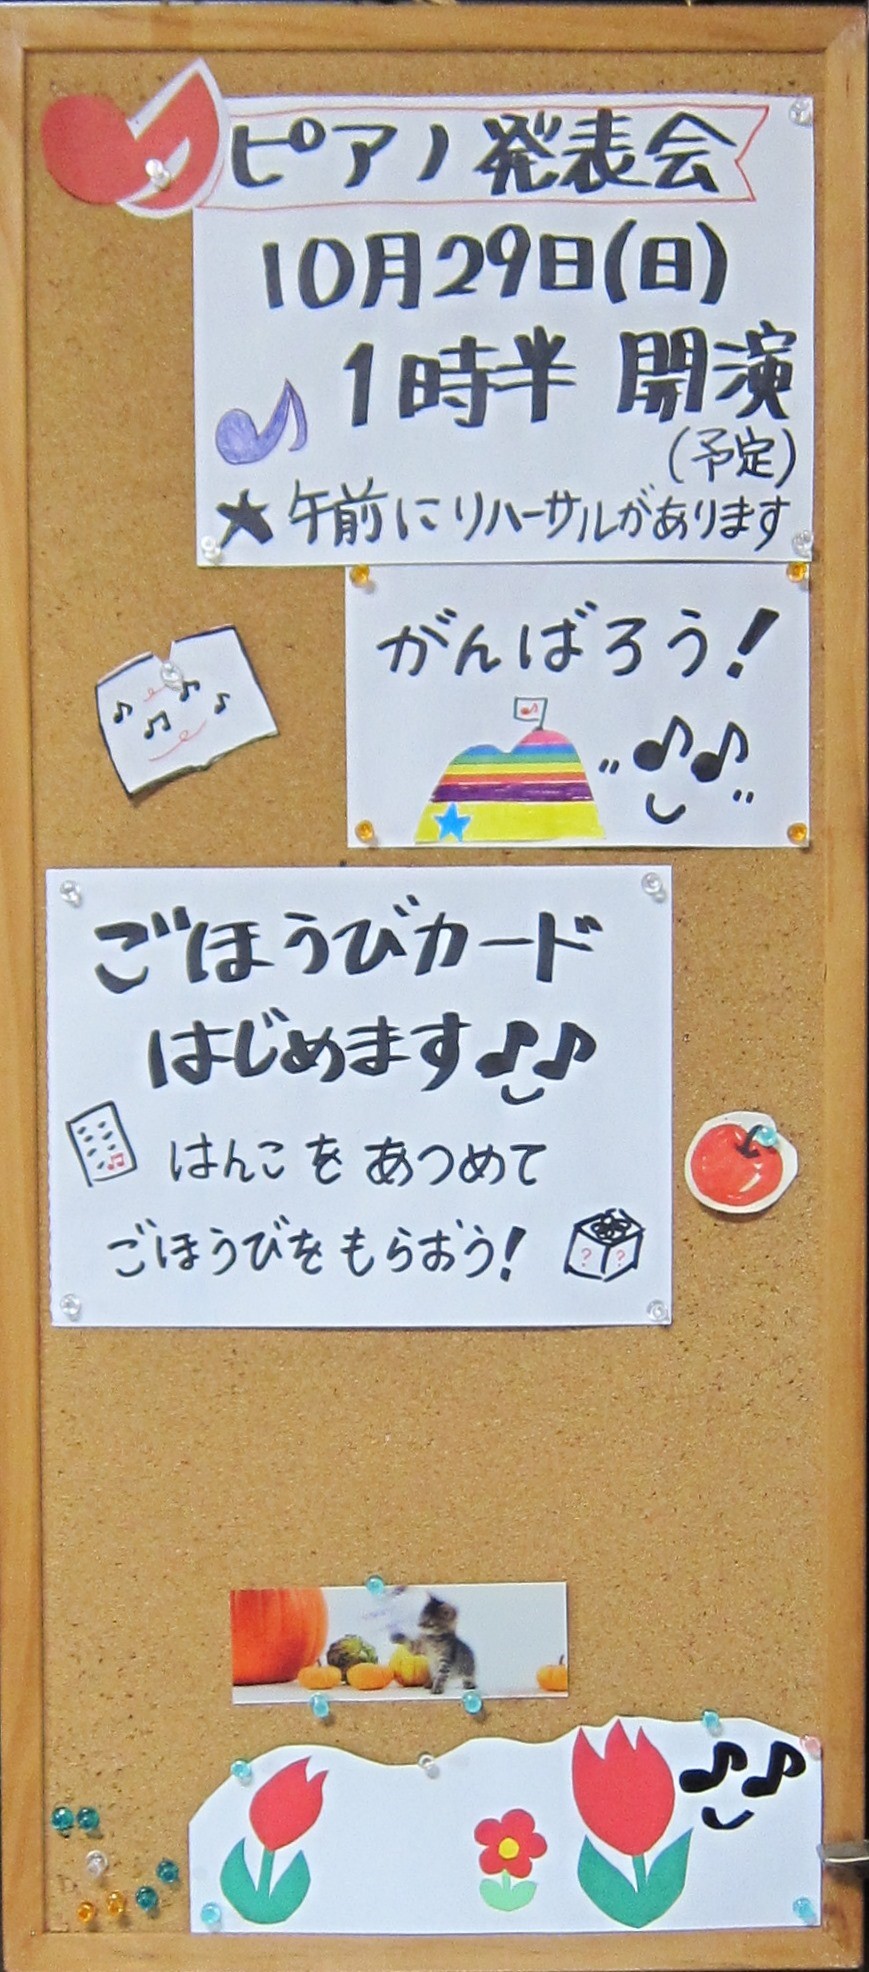 ピアノ発表会
10月29日(日)
1時半 開演
(予定)
★午前にリハーサルがあります
がんばろう!
ごほうびカード
はじめます♪♪
はんこをあつめて
ごほうびをもらおう!
? ?